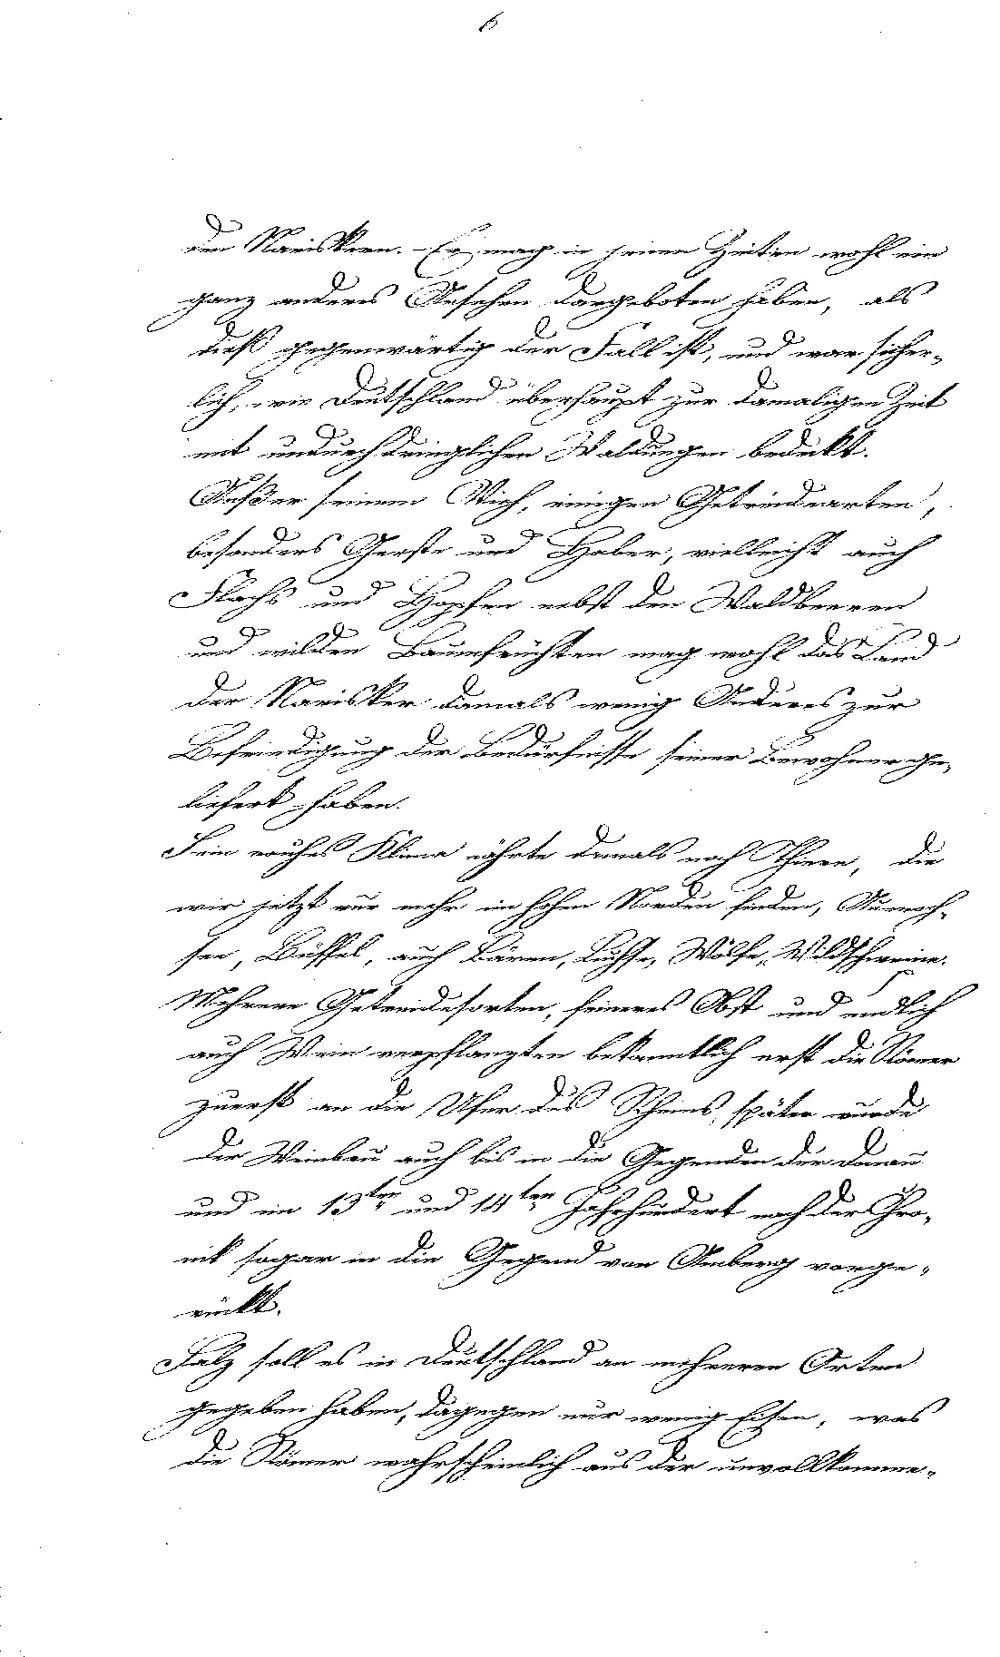 6
den Nariskern. – Er mag in jenen Zeiten wohl ein
ganz anderes Ansehen dargeboten haben, als
dieß gegenwärtig der Fall ist, und war sicher-
lich, wie Deutschland überhaupt zur damaligen Zeit
mit undurchdringlichen Waldungen bedeckt.
Außer seinem Vieh, einigen Getreidearten,
besonders Gerste und Haber, vielleicht auch
Flachs und Hopfen nebst den Waldbeeren
und wilden Baumfrüchten mag wohl das Land
der Narisker damals wenig Anderes zur
Befriedigung der Bedürfnisse seiner Bewohner ge-
liefert haben.
Sein rauhes Klima nährte damals noch Thiere, die
wir jetzt nur mehr im hohen Norden finden, Aueroch-
sen, Büffel, auch Bären, Luchse, Wölfe, Wildschweine.
Mehrere Getreidesorten, feineres Obst und endlich
auch Wein verpflanzten bekanntlich erst die Römer
zuerst an die Ufer des Rheins, später wurde
der Weinbau auch bis in die Gegenden der Donau
und im 13ten und 14ten Jahrhundert nach der Chro-
nik sogar in die Gegend von Amberg vorge-
rückt.
Salz soll es in Deutschland an mehreren Orten
gegeben haben, dagegen nur wenig Eisen, was
die Römer wahrscheinlich aus der unvollkomme-